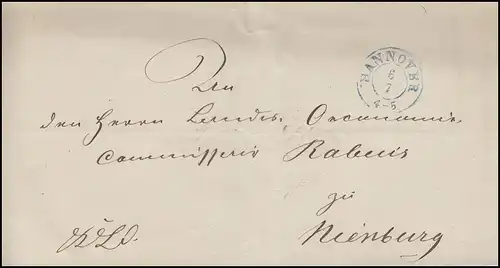 HANNOVER
6
7
4-5
An
den Herrn Landes, Oeconomie,
Commissair Rabius
zu
Nienburg